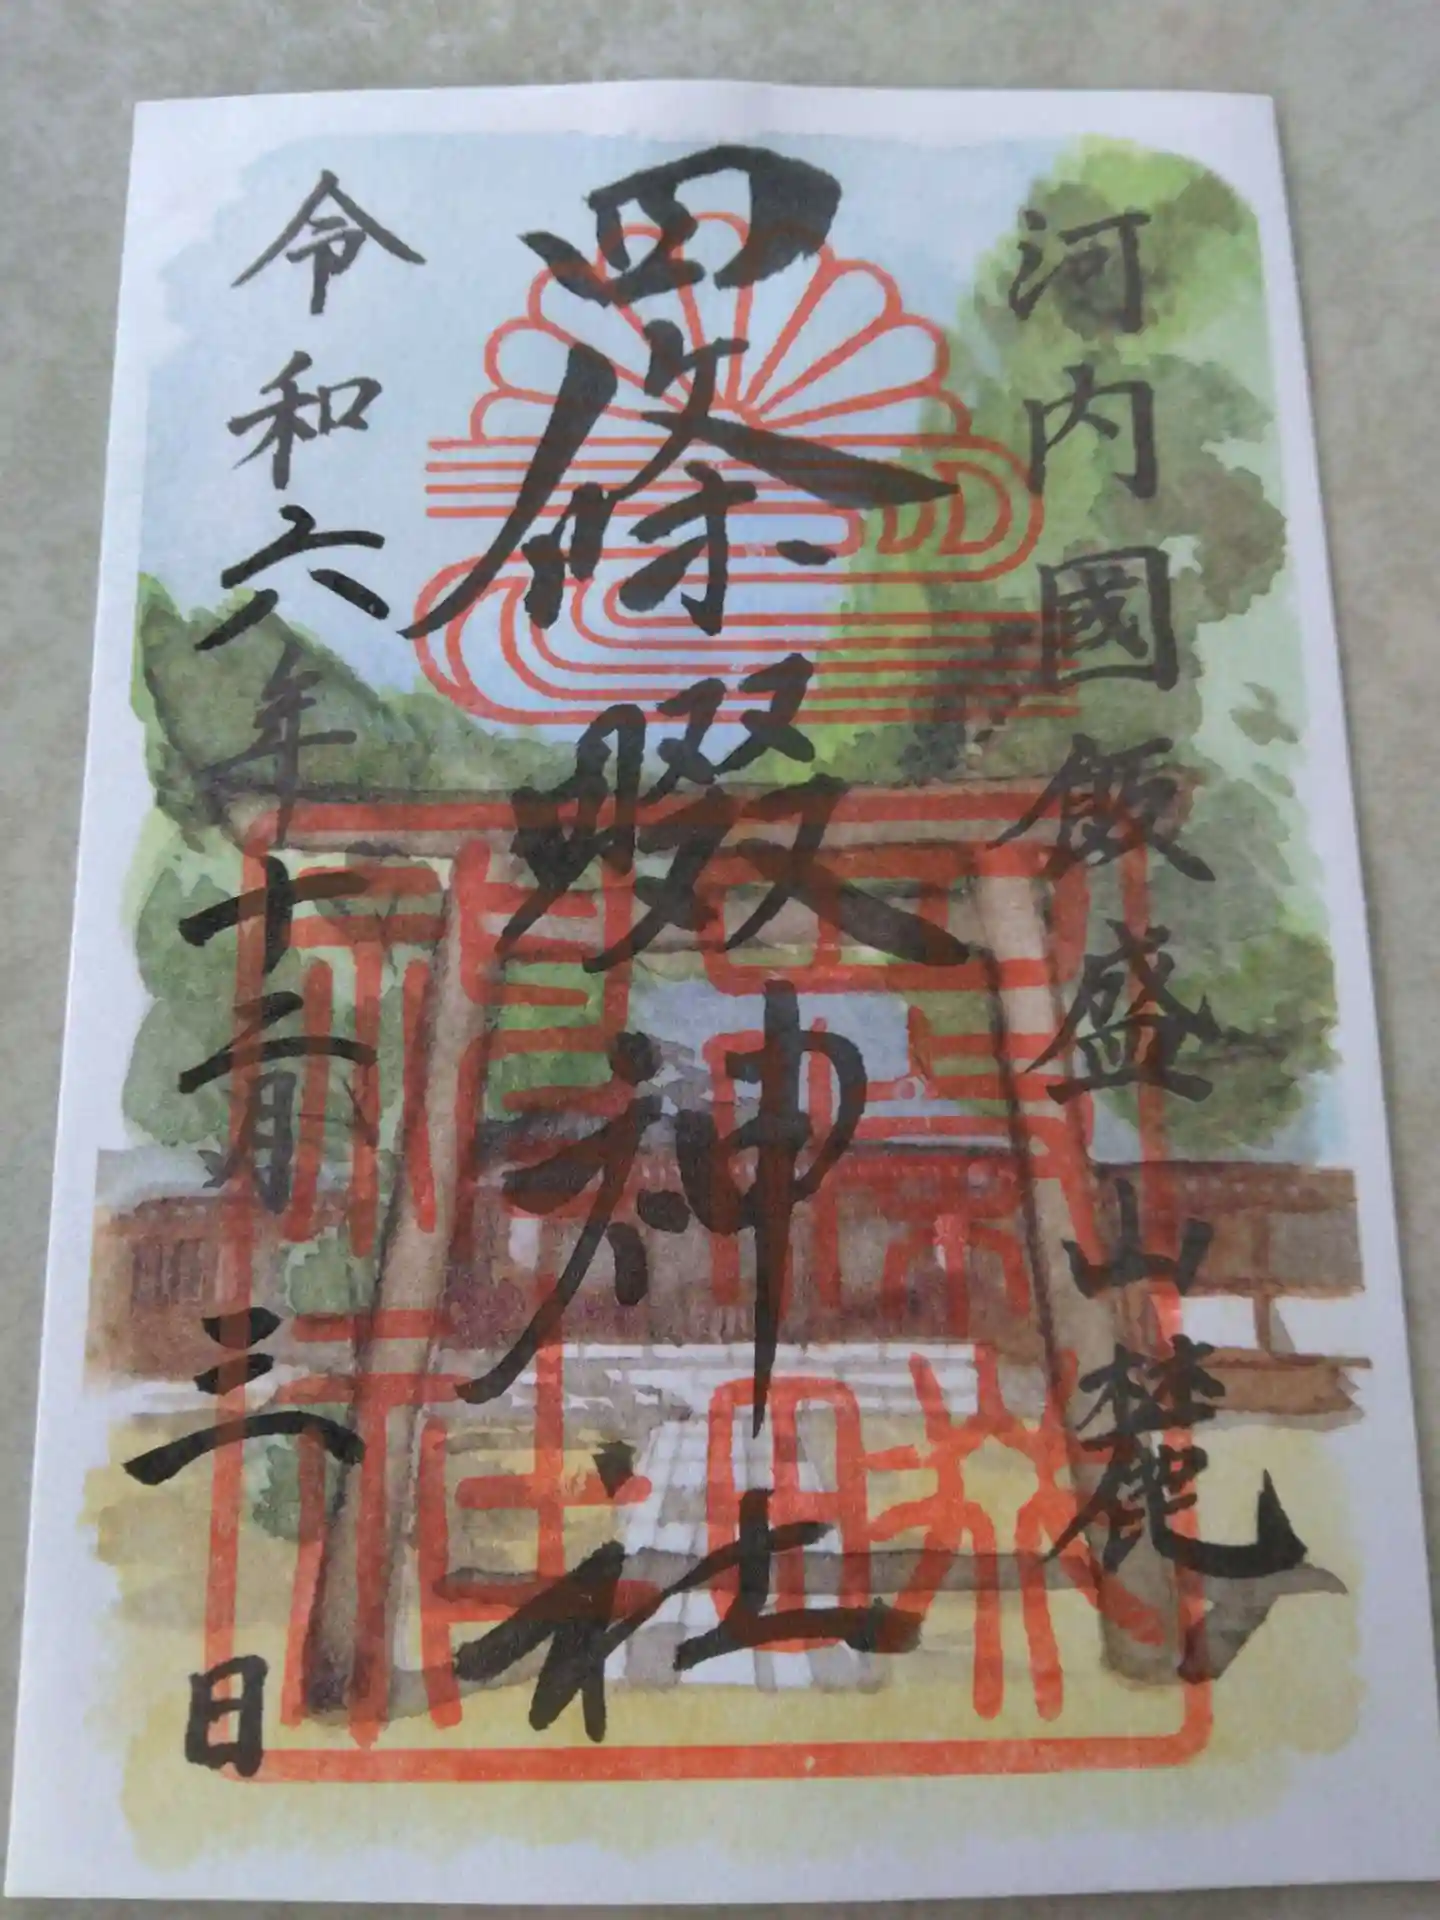 河内國飯盛山麓
四條畷神社
令和六年十二月三日
四條畷
神社